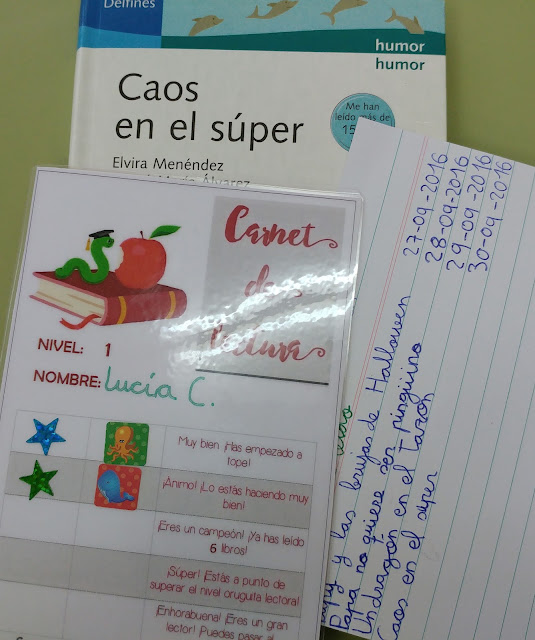 Delfines
humor
humor
Caos
en el súper
Me han
leído más de
Elvira Menéndez
María Álvarez
Carnet
de
lectura
NIVEL: 1
NOMBRE: Lucía C.
Muy bien ¡Has empezado a
tope!
¡Animo! ¡Lo estás haciendo muy
bien!
¡Eres un campeón! ¡Ya has leído
6 libros!
¡Súper! ¡Estás a punto de
superar el nivel oruguita lectora!
¡Enhorabuena! ¡Eres un gran
lector! ¡Puedes pasar al
y las brujas de Halloween 27-09-2016
Papa no quiere ser pingüino 28-09-2016
Un dragón en el tazón 29-09-2016
Caos en el súper 30-09-2016